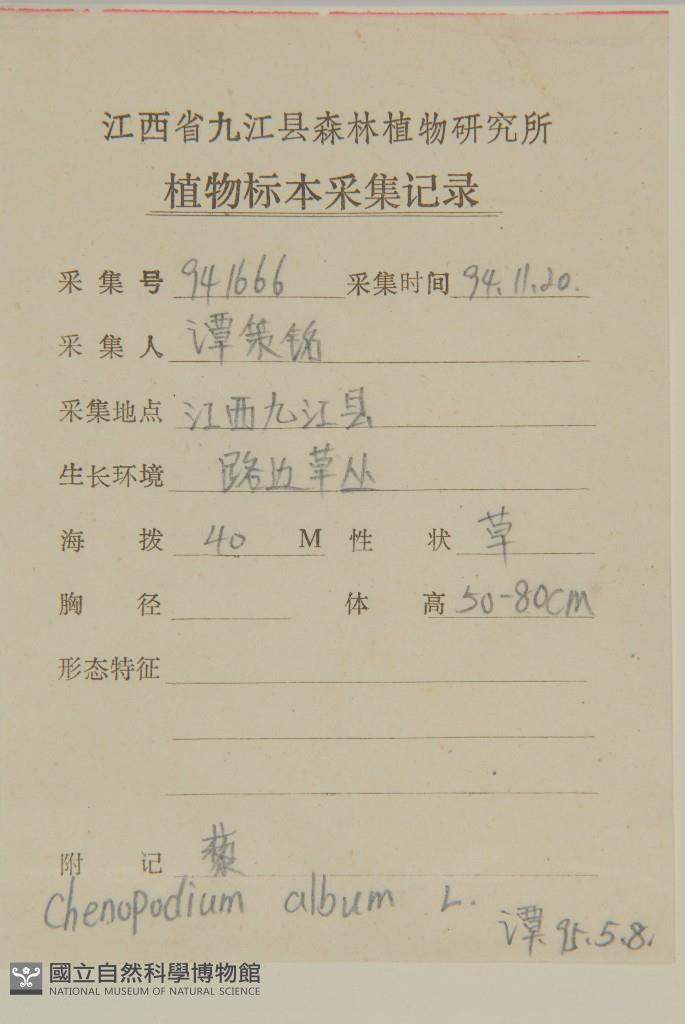 江西省九江县森林植物研究所
植物标本采集记录
采集号 941666 采集时间 94.11.20.
采集人 谭策铭
采集地点 江西九江县
生长环境 路边草丛
海拨 40 M 性状 草
胸径 体高 50-80cm
形态特征
附记 藜
Chenopodium album L.
谭 95.5.8.
國立自然科學博物館
NATIONAL MUSEUM OF NATURAL SCIENCE